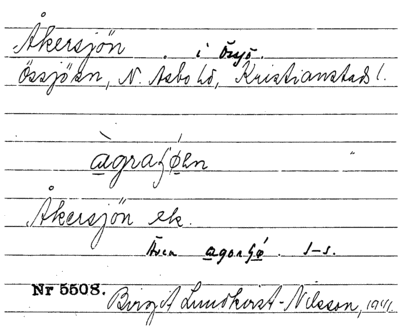 Åkersjön i Össjö
Össjö sn, N. Åsbo hd, Kristianstads l.
àgraʃǿen
Åkersjön ek.
Även agorʃǿ. s-s.
Nr 5508. Birgit Lundkvist-Nilsson, 1941